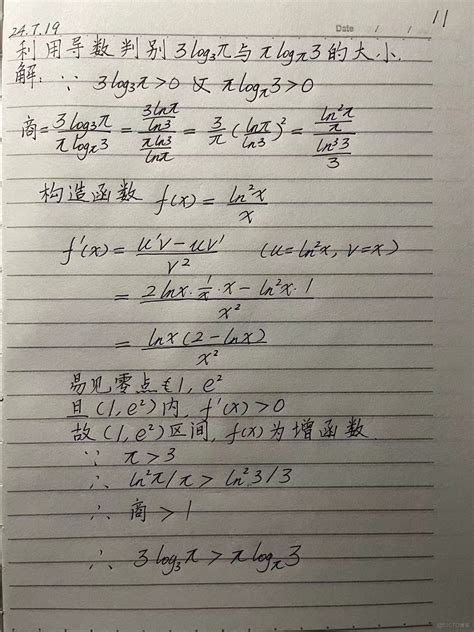 11
24.7.19
Date / /
利用导数判别 3log₃π 与 πlog_π3 的大小.
解: ∵ 3log₃π>0 及 πlog_π3>0
商 = 3log₃π / πlog_π3 = (3lnπ/ln3) / (πln3/lnπ) = 3/π (lnπ/ln3)² = (ln²π/π) / (ln²3/3)
构造函数 f(x) = ln²x / x
f'(x) = (u'v-uv') / v² (u=ln²x, v=x)
= (2lnx·1/x·x - ln²x·1) / x²
= lnx(2-lnx) / x²
易见零点在 1, e²
且 (1, e²) 内, f'(x)>0
故 (1, e²) 区间, f(x) 为增函数.
∵ π>3
∴ ln²π/π > ln²3/3
∴ 商>1
∴ 3log₃π > πlog_π3